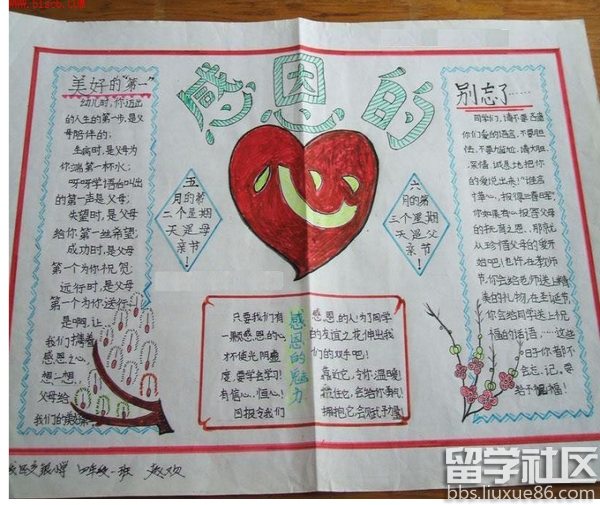 感恩的
心
美好的“第一”
幼儿时,你迈出
的人生的第一步,是父
母陪伴的;
生病时,是父母为
你端第一杯水;
呀呀学语在叫出
的第一声是父母;
失望时,是父母
给你第一丝希望;
成功时,是父母
第一个为你祝贺;
远行时,是父母
第一个为你送行。
是啊,让
我们携着
感恩之心,
想一想,
父母给
我们的
五
月的第
二个星期
天是母
亲节!
六
月的第
三个星期
天是父
亲节!
别忘了……
同学们,请不要吝啬
你们爱的语言,不要胆
怯,不要尴尬,请大胆、
深情、诚恳地把你
的爱说出来!“谁言
寸草心,报得三春晖,
你如果有心报答父母
的抚育之恩,那就
从珍惜父母的爱开
始吧!也许,在教师
节,你会给老师送上精
美的礼物,在圣诞节,
你会给同学送上祝
福的话语,……这些
日子,你看不
会忘记,要
给予
感恩的魅力
只要我们有
一颗感恩的心,
不管光阴
度,要学会学习!
有信心、恒心!
回报令我们
感恩的人;为了同学
的友谊之花,伸出我
们的双手吧!
靠近它,令你温暖!
抓住它,会给你勇气!
拥抱它,会
四年级一班
留学社区
bbs.liuxue86.com